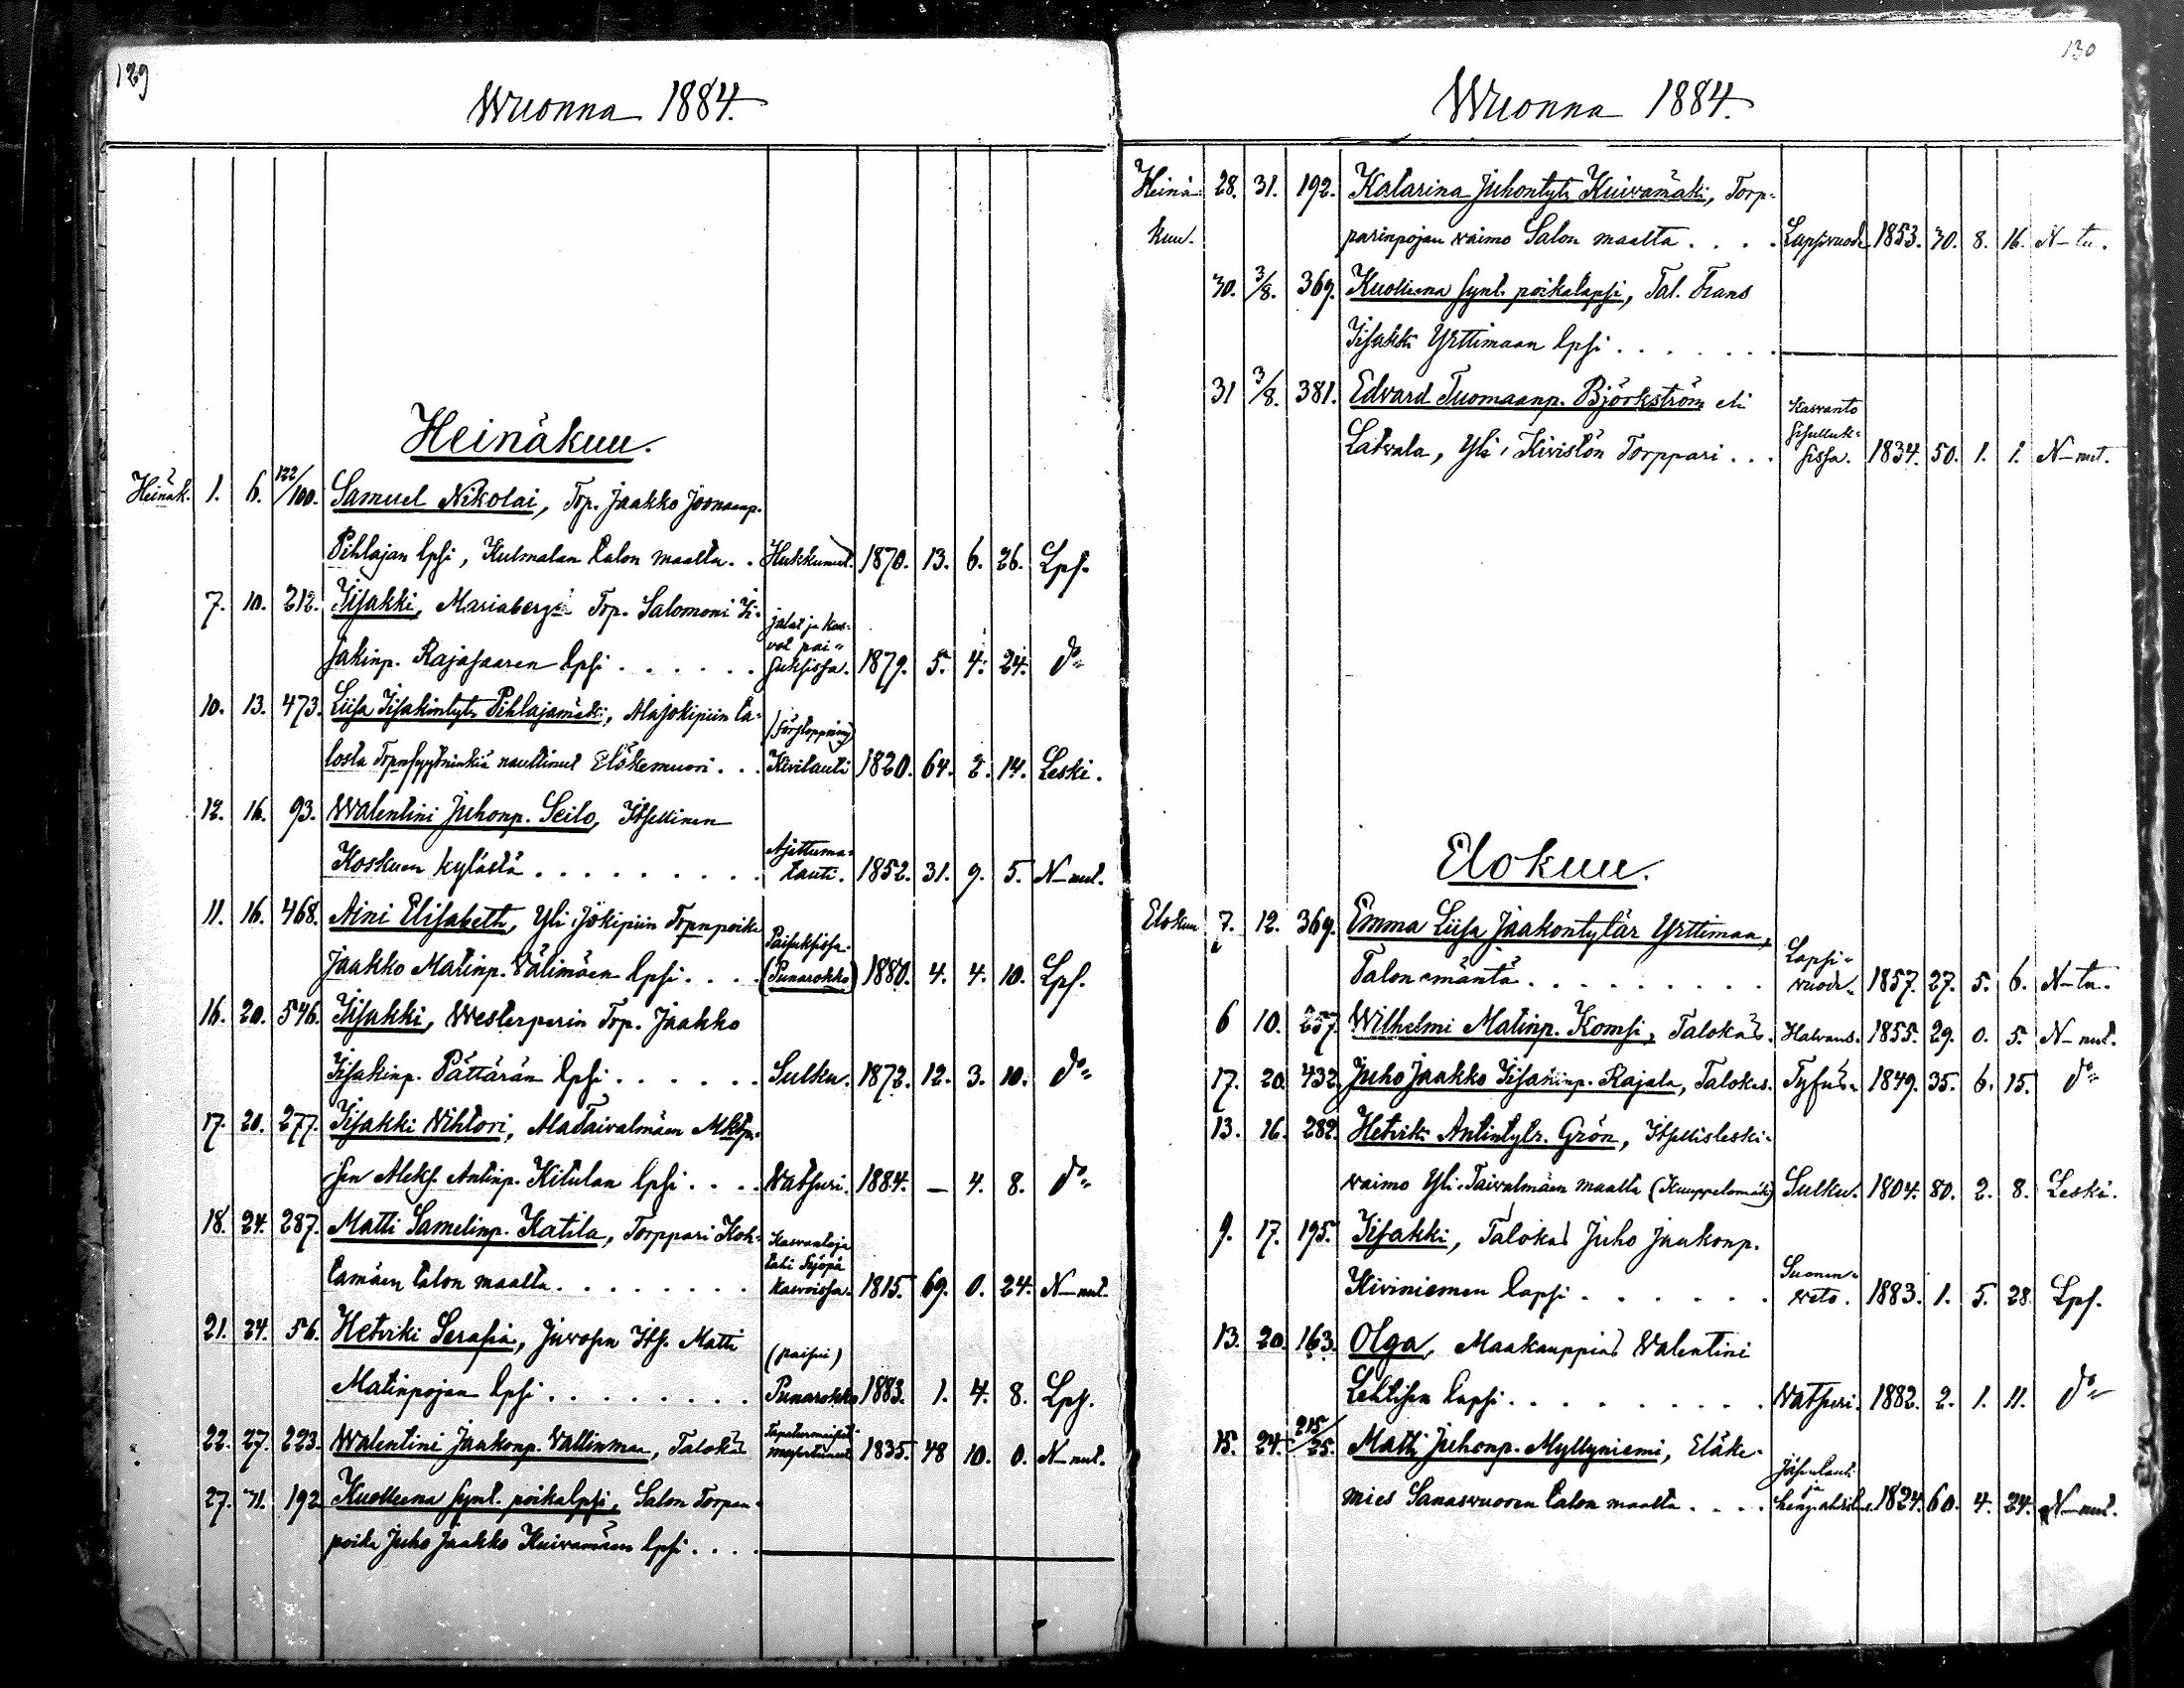 129
Wuonna 1884.
Heinäkuu.
Heinäk. 1. 6. 122/100. Samuel Nikolai, Trp. Jaakko Joonanp.
Pihlajan lpsi, Kulmalan talon maalta. . Hukkunut. 1870. 13. 6. 26. Lps.
7. 10. 212. Iisakki, Mariaberg Trp. Salomoni Ii-
sakinp. Rajasaaren lpsi . . . . . . jalat ja kas-
vot pai-
suksissa. 1879. 5. 4. 24. do
10. 13. 473. Liisa Iisakintytr Pihlajamäki, Alajokipiin ta-
losta nauttinut Eläkemuori. . . (Förstoppning)
Kivitauti 1820. 64. 2. 14. Leski.
12. 16. 93. Walentini Juhonp. Seilo, Itsellinen
Koskuen kylästä . . . . . . . . . Ajettuma-
tauti. 1852. 31. 9. 5. N-mut.
11. 16. 468. Aini Elisabeth, Yli Jokipiin Trpnpoika
Jaakko Matinp. Välimäen lpsi. . . . Paisuksissa.
(Punarokko) 1880. 4. 4. 10. Lps.
16. 20. 546. Iisakki, Westerperin Trp. Jaakko
Iisakinp. Pättärän lpsi . . . . . . Sulku. 1872. 12. 3. 10. do
17. 20. 277. Iisakki Wihtori, AlaTaivalmäen
sen Aleks. Antinp. Kitulan lpsi . . . . Watsuri. 1884. — 4. 8. do
18. 24. 287. Matti Samelinp. Katila, Torppari Koh-
tamäen talon maalta. . . . . . . . Kasvantoja
tahi Syöpä
kasvoissa. 1815. 69. 0. 24. N-mut.
21. 24. 56. Hetviki Serafia, Juvosen Its. Matti
Matinpojan lpsi . . . . . . . . (paisui)
Punarokko 1883. 1. 4. 8. Lps.
22. 27. 223. Walentini Jaakonp. Vallinmaa, Talokas 1835. 48 10. 0. N-mut.
27. 31. 192 Kuolleena synt. poikalpsi, Salon Torpan-
poika Juho Jaakko Kuivamäen lpsi . . . .
130
Wuonna 1884.
Heinä- 28. 31. 192. Katarina Juhontytr Kuivamäki, Torp-
kuu. parinpojan vaimo Salon maalta . . . . Lapsivuode 1853. 30. 8. 16. N-tu.
30. 3/8. 369. Kuolleena synt. poikalapsi, Tal. Frans
Iisakki Yrttimaan lpsi . . . . . . .
31 3/8. 381. Edvard Tuomaanp. Björkström eli
Latvala, Yli-Kivistön Torppari . . . Kasvanto
sisälluk-
sissa. 1834. 50. 1. 1. N-mut.
Elokuu.
Elokuu 7. 12. 369. Emma Liisa Jaakontytär Yrttimaa,
Talon emäntä . . . . . . . . . Lapsi-
vuode. 1857. 27. 5. 6. N-tu.
6 10. 257. Wilhelmi Matinp. Komsi, Talokas. Halvaus. 1855. 29. 0. 5. N-mut.
17. 20. 432. Juho Jaakko Iisakinp. Rajala, Talokas. Tyfus. 1849. 35. 6. 15. do
13. 16. 282. Hetvik Antintytr. Grön, Itsellisleski-
vaimo Yli-Taivalmäen maalta (Kuuppelomäki) Sulku. 1804. 80. 2. 8. Leski.
9. 17. 195. Iisakki, Talokas Juho Jaakonp.
Kiviniemen lapsi . . . . . . . Suonen-
veto. 1883. 1. 5. 28. Lps.
13. 20. 163. Olga, Maakauppias Walentini
Lehtisen lapsi . . . . . . . . . Watsuri. 1882. 2. 1. 11. do
15. 24. 215/25. Matti Juhonp. Myllyniemi, Eläke-
mies Sanasvuoren talon maalta . . . . Jäsentauti
ja
henjahdistus. 1824. 60. 4. 24. N-mut.